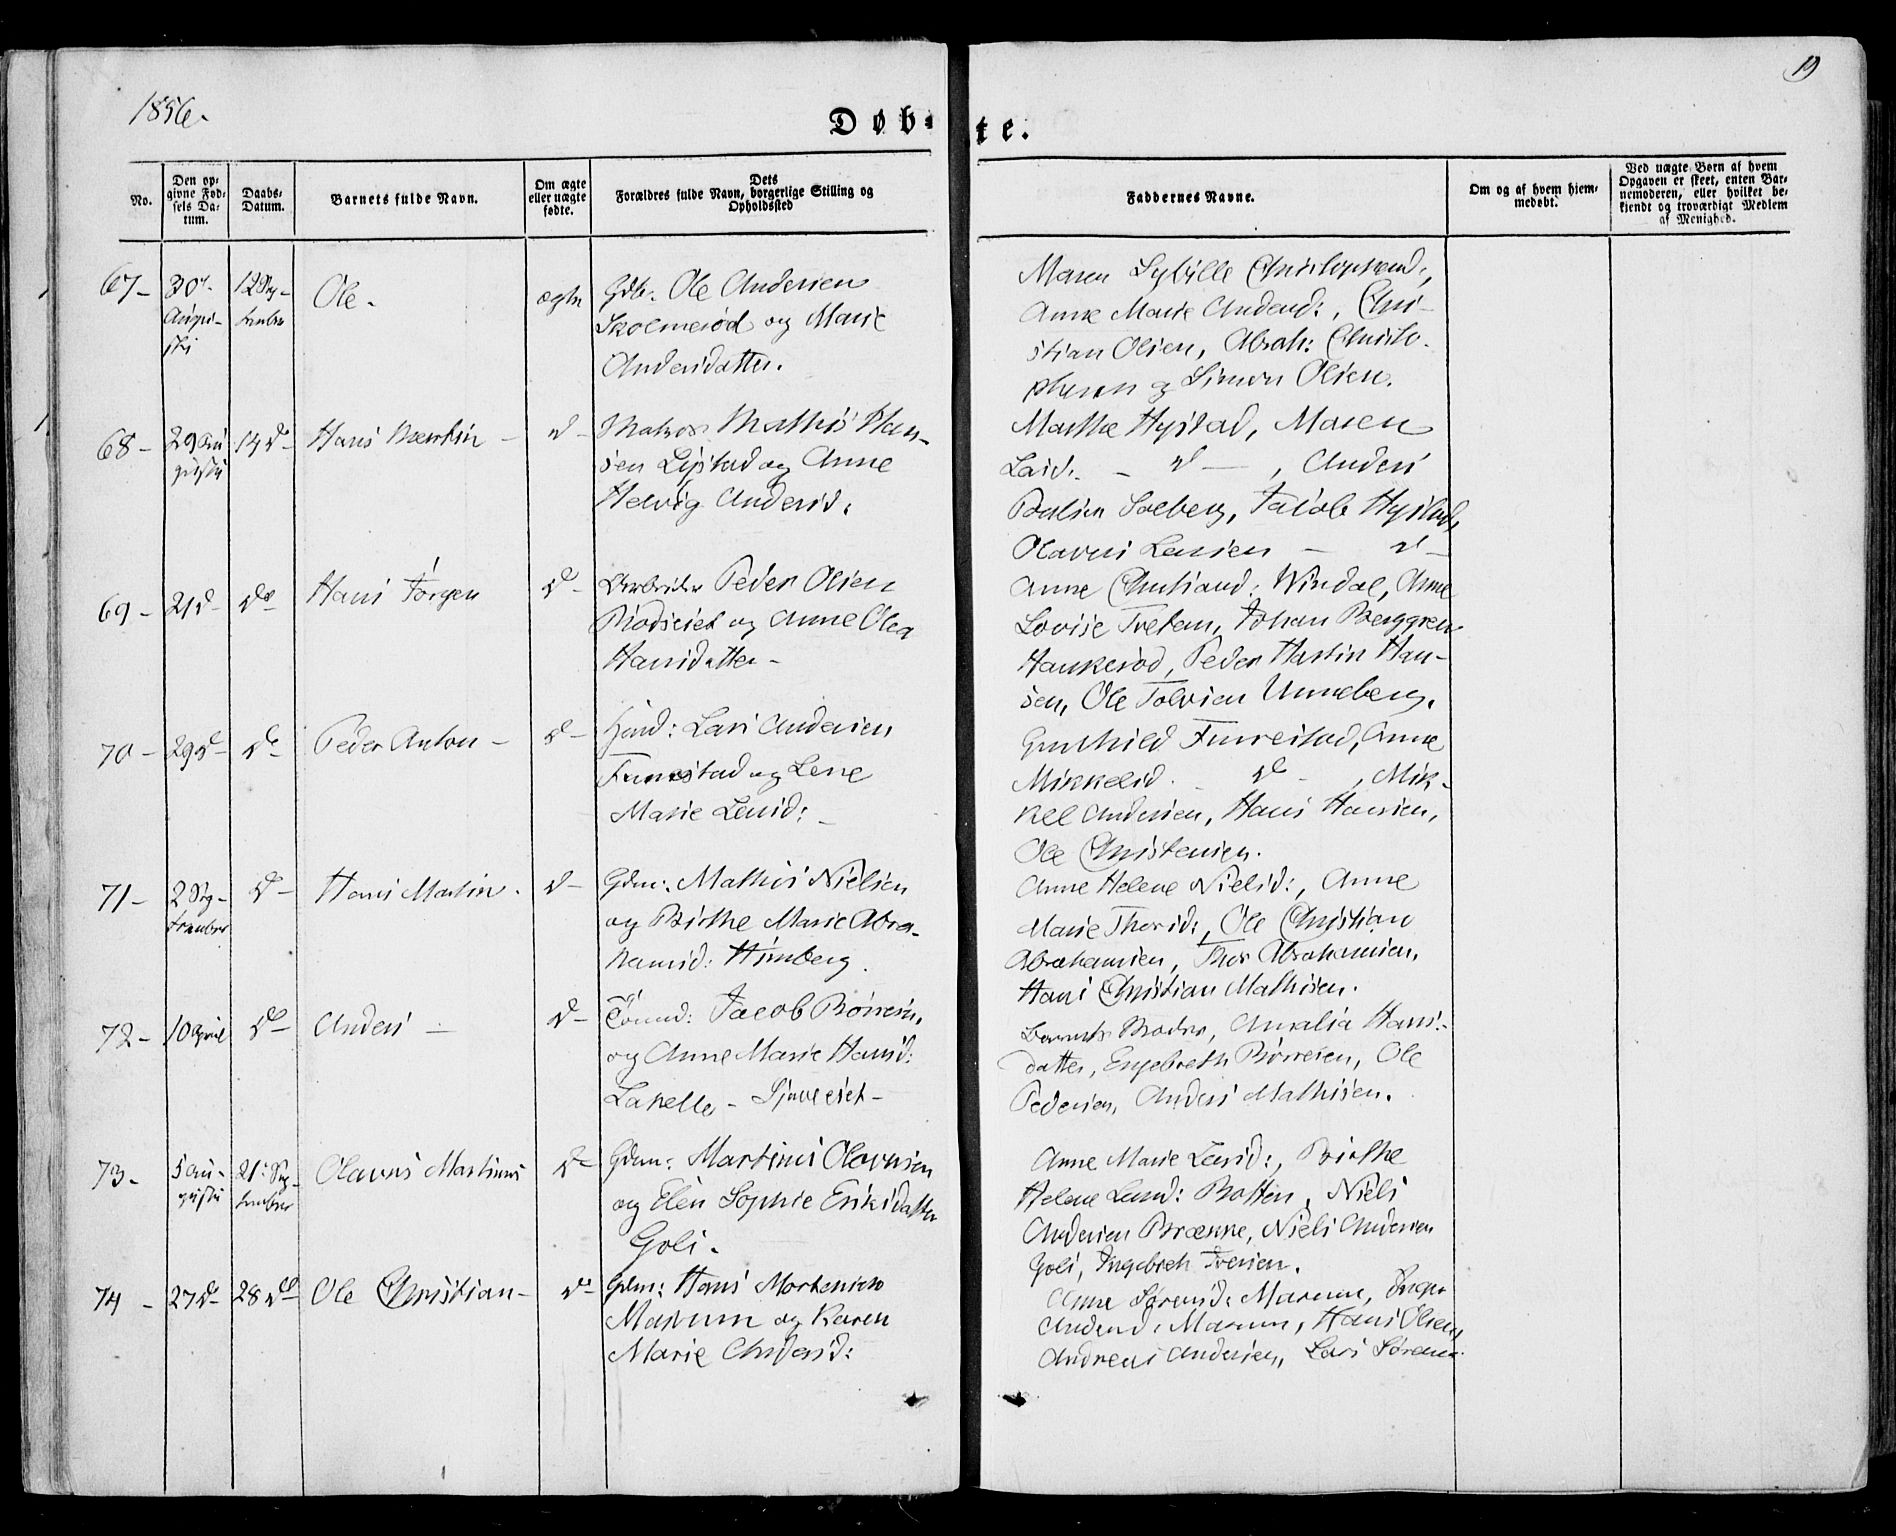 1856.
19
Døb-te.
No.
Den op-
givne Fød-
sels Da-
tum.
Daabs-
Datum.
Barnets fulde Navn.
Om ægte
eller uægte
fødte.
Dets
Forældres fulde Navn, borgerlige Stilling og
Opholdssted
Faddernes Navne.
Om og af hvem hjem-
medøbt.
Ved uægte Børn af hvem
Opgaven er skeet, enten Bar-
nemoderen, eller hvilket be-
kjendt og troværdigt Medlem
af Menighed.
67-
30
Augu-
sti
12 Sep-
tember
Ole -
ægte
Gdb: Ole Andersen
Skolmerød og Marie
Andersdatter.
Maren Sybille Christophersd:,
Anne Marie Andersd:, Chri-
stian Olsen, Abrah: Christo-
phersen og Simon Olsen.
68-
29 Au
gusti
14 d-
Hans Martin -
d-
Matros Mathis Han-
sen Lystad og Anne
Helvig Andersd:
Marthe Hystad, Maren
Larsd: - d -, Anders
Solberg, Jacob Hystad,
Olavus Larsen - d -
69-
21 d-
do
Hans Jørgen
d-
Peder Olsen
Rødseiet og Anne Olea
Hansdatter -
Anne Christiansd: Windal, Anne
Lovise Tveten, Johan Berggren
Haukerød, Peder Martin Han-
sen, Ole Tolvsen Unneberg.
70-
29 d-
d-
Peder Anton -
d-
Huusd: Lars Andersen
Furustad og Lene
Marie Larsd: -
Gunhild Furustad, Anne
Mikkelsd. d -, Mik-
kel Andersen, Hans Hansen,
Ole Christensen.
71-
2 Sep-
tember
d-
Hans Martin.
d-
Gdm: Mathis Nielsen
og Birthe Marie Abra-
hamsd: Himberg.
Anne Helene Nielsd:, Anne
Marie Thorsd:, Ole Christian
Abrahamsen, Thor Abrahamsen,
Hans Christian Mathisen.
72-
10 April
do-
Anders -
d-
Jacob Børresen
og Anne Marie Hansd:
Lakelle -
Barnets Moder, Amalia Hans-
datter, Engebreth Børresen, Ole
Pedersen, Anders Mathisen.
73-
5 Au-
gusti
21: Sep-
tember
Olavus Martinus
d-
Gdm: Martinus Olavesen
og Elen Sophie Eriksdatter
Goli.
Anne Marie Larsd:, Birthe
Helene Larsd: Botten, Niels
Andersen Brænne, Niels Andersen
Goli, Ingebreth Iversen.
74 -
27 d-
28 do
Ole Christian -
d-
Gdm: Hans Mortensen
Marum og Karen
Marie Andersd:
Anne Sørensd: Marum, Inger
Andersd: Marum, Hans Olsen,
Andreas Andersen, Lars Sørens.